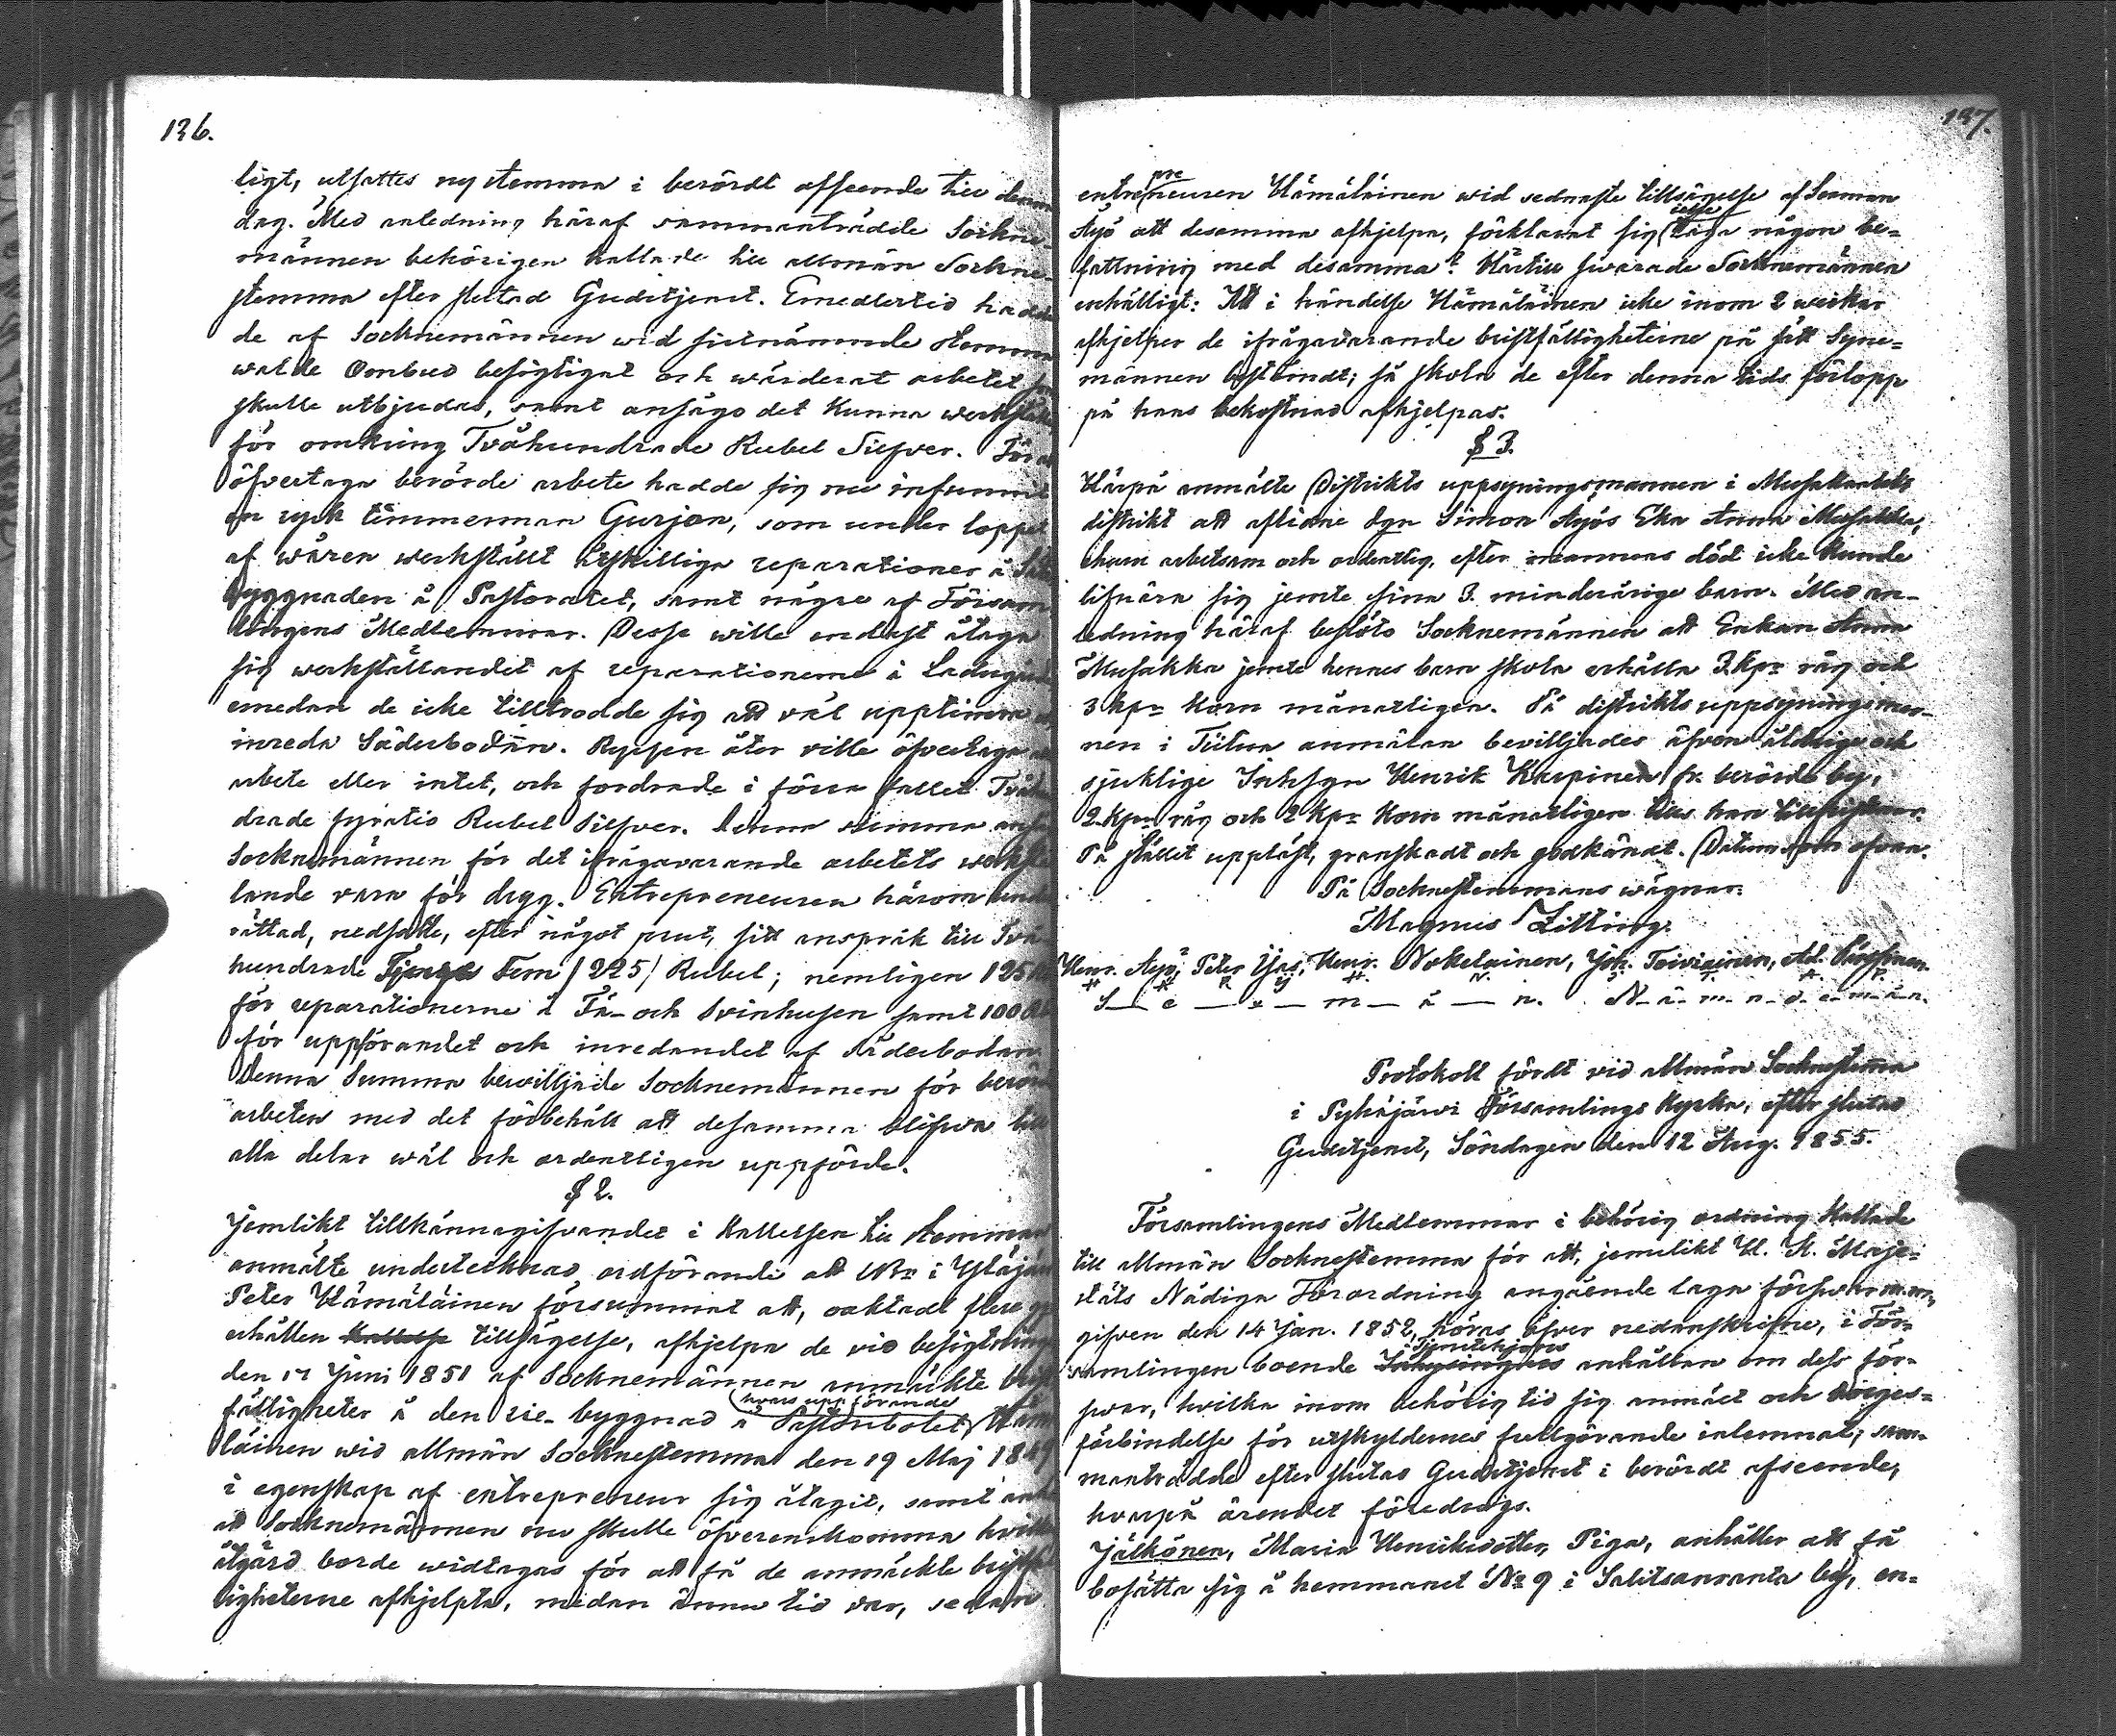 136.
ligt, utsattes ny stemma i berördt afseende till denna
dag. Med anledning häraf sammanträdde Sockne-
männen behörigen kallade till allmän Sockne-
stemma efter slutad Gudstjenst. Emedlertid hade
de af Socknemännen wid sistnämnde stemma
walde Ombud besigtigat och wärderat arbetet som
skulle utbjudas, samt ansågo det kunna werkställas
för omkring Tvåhundrade Rubel Silfver. För att
öfvertaga berörde arbete hade sig nu infunnit
en rysk timmerman Gurjan, som under loppet
af wåren werkställt åtskilliga reparationer å
byggnaden å Pastoratet, samt några af Försam-
lingens Medlemmar. Desse wille endast åtaga
sig werkställandet af reparationerna å Ladugården
emedan de icke tilltrodde sig att väl upptimra och
inreda Sädesbodan. Ryssen åter ville öfvertaga allt
arbete eller intet, och fordrade i förra fallet Tvåhun-
drade fyratio Rubel Silfver. Denna summa ansågo
Socknemännen för det ifrågavarande arbetets werkstäl-
lande vara för dryg. Entrepreneuren härom under-
rättad, nedsatte, efter något prut, sitt anspråk till Två-
hundrade Tjugu Fem /225/ Rubel; nemligen 125
för reparationerna å Fä- och Svinhusen samt 100
för uppförandet och inredandet af Sädesbodan.
Denna Summa bewilljade Socknemännen för berörde
arbeten med det förbehåll att desamma blifva till
alla delar wäl och ordentligen uppförde.
§ 2.
Jemlikt tillkännagifvandet i Kallelsen till stemman
anmälte undertecknad ordförande att Bn i Yläjärvi
Peter Hämäläinen försummat att, oaktadt flere
erhållen Kallelse tillsägelse, afhjelpa de vid besigtning
den 17 Juni 1851 af Socknemännen anmärkte brist-
fälligheter å den rie-byggnad å Pastorsbolet, hvars uppförande Hämä-
läinen wid allmän Socknestemma den 19 Maj
i egenskap af entrepreneur sig åtagit, samt
att Socknemännen nu skulle öfverenskomma hvilken
åtgärd borde widtagas för att få de anmärkte bristfäl-
ligheterne afhjelpta, medan ännu tid var, sedan
137.
entrepreneuren Hämäläinen wid sednaste tillsägelse af Seaman
Äyö att desamma afhjelpa, förklarat sig icke taga någon be-
fattning med desamma? Härtill svarade Socknemännen
enhälligt: Att i händelse Hämäläinen icke inom 2 weckor
afhjelper de ifrågavarande bristfälligheterne på sätt Syne-
männen bestämdt; så skola de efter denna tids förlopp
på hans bekostnad afhjelpas.
§ 3.
Härpå anmälte Distrikts uppsyningsmannen i Musakanlaks
distrikt att aflidne Lgn Simon Äyös Eka Anna Musakka,
ehuru arbetsam och ordentlig, efter mannens död icke kunde
lifnära sig jemte sina 3 minderårige barn. Med an-
ledning häraf beslöto Socknemännen att Enkan Anna
Musakka jemte hennes barn skola erhålla 3 kpr råg och
3 kpr korn månatligen. På distrikts uppsyningsman-
nen i Tiitua anmälan bevilljades äfven åldrige och
sjuklige Inhsgn Henrik Karpinen fr. berörde by,
2 kpr råg och 2 kpr korn månatligen tills han tillfrisknar.
På stället uppläst, granskadt och godkändt. Datum som ofvan.
På Socknestemmans wägnar:
Magnus Zitting.
Henr. Äyö, Peter Yjäs, Henr. Nokelainen, Joh. Toiviainen, Ad. Pösönen.
S — e — x — m — ä — n. N-ä-m-n-d-e-m-ä-n.
Protokoll fördt vid allmän Socknestemma
i Pyhäjärvi Församlings Kyrka, efter slutad
Gudstjenst, Söndagen den 12 Aug. 1855.
Församlingens Medlemmar i behörig ordning kallade
till allmän Socknestemma för att, jemlikt H. K. Maje-
stäts Nådiga Förordning angående laga försvar m.m.,
gifven den 14 Jan. 1852, höras öfver nedanskrifne, i För-
samlingen boende Tjenstehjons anhållan om dess för-
svar, hvilka inom behörig tid sig anmält och borges-
förbindelse för utskyldernes fullgörande inlemnat; sam-
manträdde efter slutad Gudstjenst i berördt afseende,
hvarpå ärendet föredrogs.
Jälkönen, Maria Henriksdotter, Piga, anhåller att få
bosätta sig å hemmanet No 9 i Salitsanranta by, en-